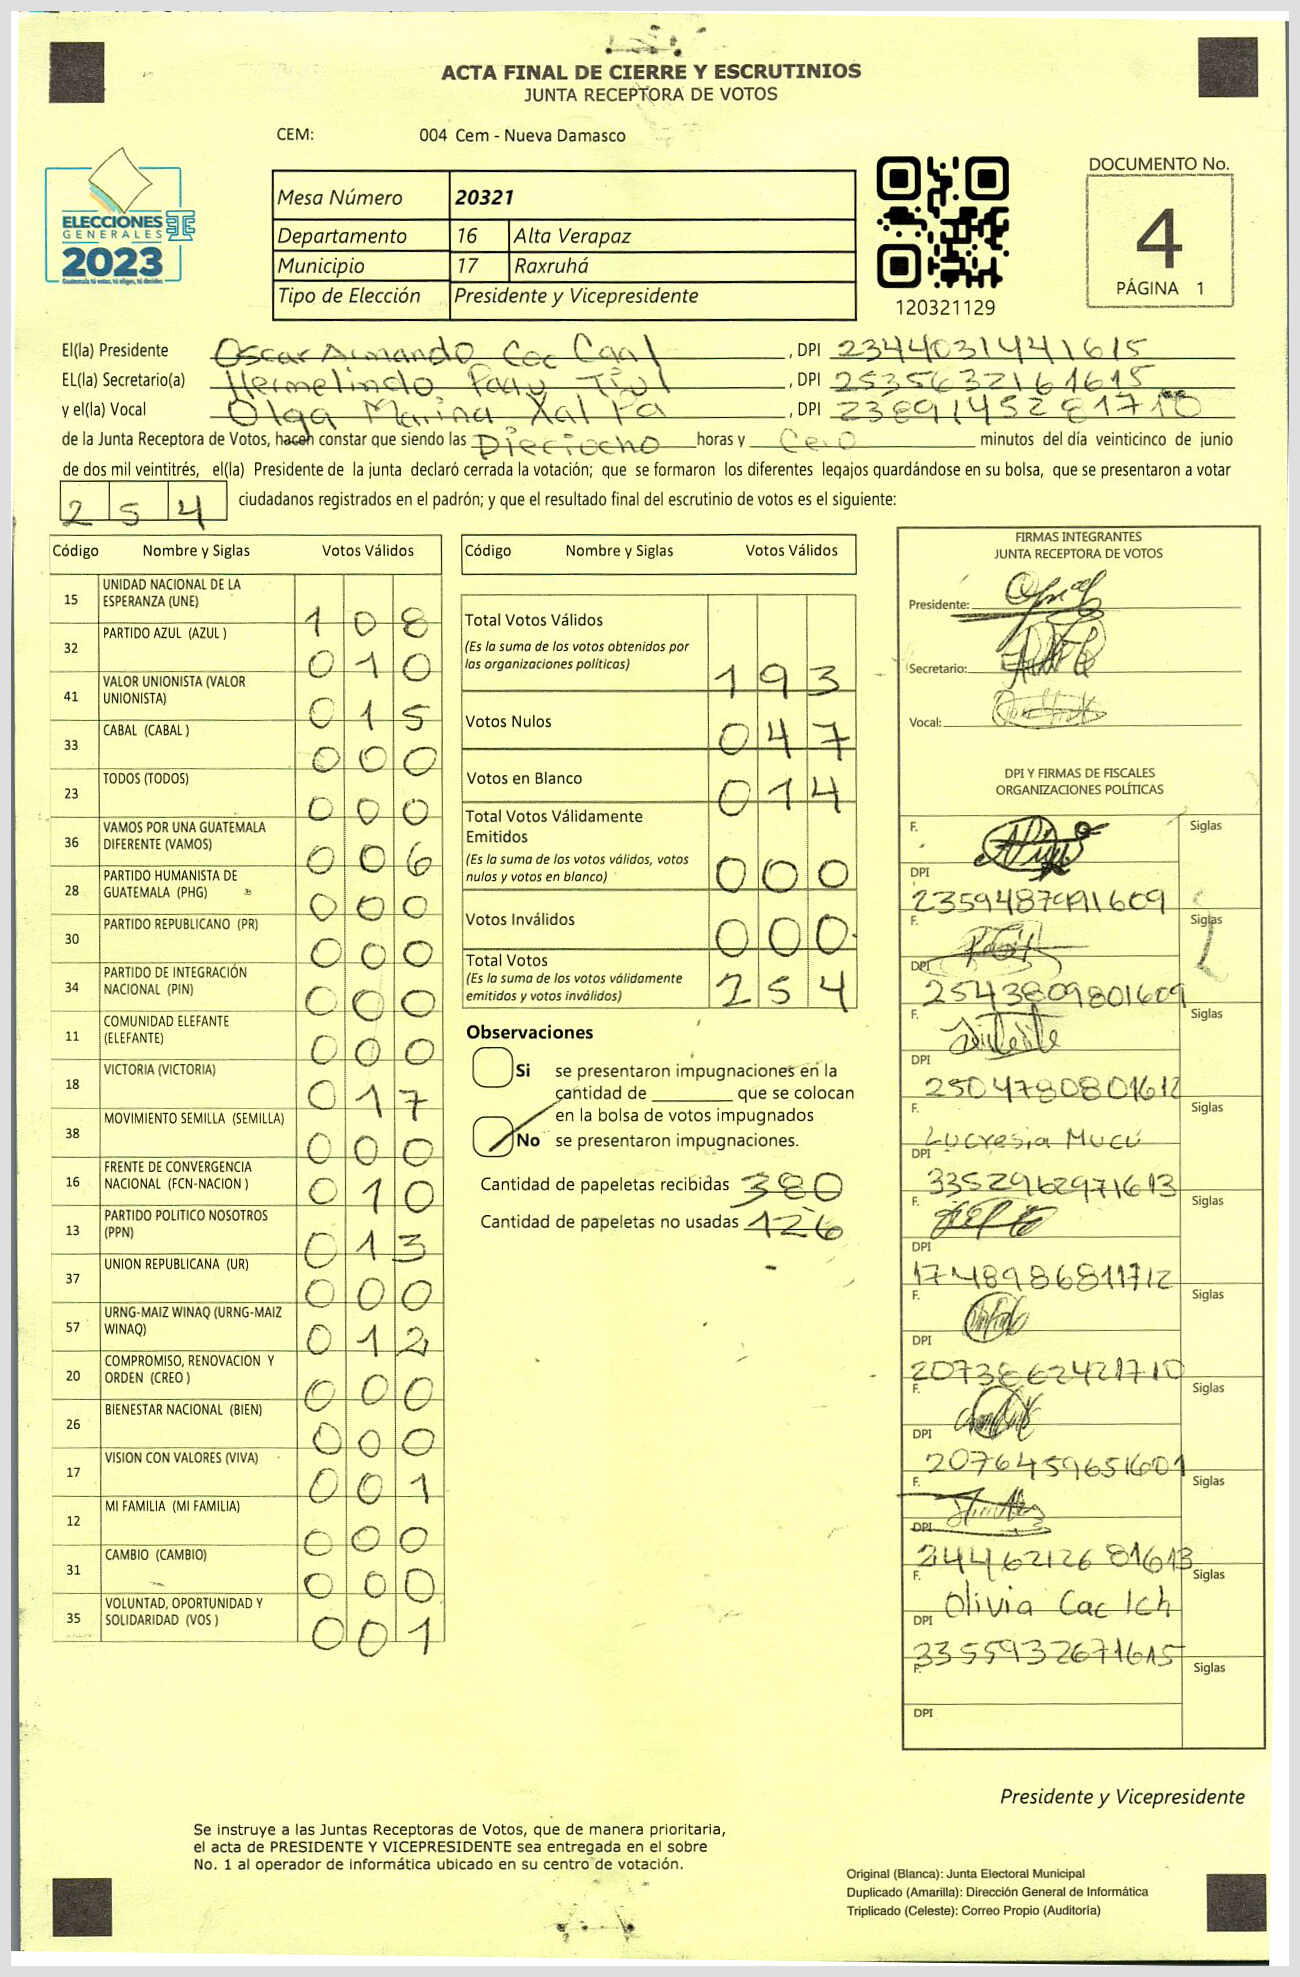 ACTA FINAL DE CIERRE Y ESCRUTINIOS
JUNTA RECEPTORA DE VOTOS
CEM: 004 Cem - Nueva Damasco
ELECCIONES
GENERALES
2023
Mesa Número 20321
Departamento 16 Alta Verapaz
Municipio 17 Raxruhá
Tipo de Elección Presidente y Vicepresidente
120321129
DOCUMENTO No.
4
PÁGINA 1
El(la) Presidente Oscar Armando Coc Caal, DPI 2344031441615
EL(la) Secretario(a) Hermelindo, DPI 2535632161615
y el(la) Vocal Olga Marina Xal Pa, DPI
de la Junta Receptora de Votos, hacen constar que siendo las Dieciocho horas y Cero minutos del día veinticinco de junio
de dos mil veintitrés, el(la) Presidente de la junta declaró cerrada la votación; que se formaron los diferentes legajos guardándose en su bolsa, que se presentaron a votar
254 ciudadanos registrados en el padrón; y que el resultado final del escrutinio de votos es el siguiente:
Código Nombre y Siglas Votos Válidos
15 UNIDAD NACIONAL DE LA ESPERANZA (UNE) 108
32 PARTIDO AZUL (AZUL ) 010
41 VALOR UNIONISTA (VALOR UNIONISTA) 015
33 CABAL (CABAL ) 000
23 TODOS (TODOS) 000
36 VAMOS POR UNA GUATEMALA DIFERENTE (VAMOS) 006
28 PARTIDO HUMANISTA DE GUATEMALA (PHG) 000
30 PARTIDO REPUBLICANO (PR) 000
34 PARTIDO DE INTEGRACIÓN NACIONAL (PIN) 000
11 COMUNIDAD ELEFANTE (ELEFANTE) 000
18 VICTORIA (VICTORIA) 017
38 MOVIMIENTO SEMILLA (SEMILLA) 000
16 FRENTE DE CONVERGENCIA NACIONAL (FCN-NACION ) 010
13 PARTIDO POLITICO NOSOTROS (PPN) 013
37 UNION REPUBLICANA (UR) 000
57 URNG-MAIZ WINAQ (URNG-MAIZ WINAQ) 012
20 COMPROMISO, RENOVACION Y ORDEN (CREO ) 000
26 BIENESTAR NACIONAL (BIEN) 000
17 VISION CON VALORES (VIVA) 001
12 MI FAMILIA (MI FAMILIA) 000
31 CAMBIO (CAMBIO) 000
35 VOLUNTAD, OPORTUNIDAD Y SOLIDARIDAD (VOS ) 001
Código Nombre y Siglas Votos Válidos
Total Votos Válidos 193
(Es la suma de los votos obtenidos por
las organizaciones políticas)
Votos Nulos 047
Votos en Blanco 014
Total Votos Válidamente
Emitidos 000
(Es la suma de los votos válidos, votos
nulos y votos en blanco)
Votos Inválidos 000
Total Votos 254
(Es la suma de los votos válidamente
emitidos y votos inválidos)
Observaciones
Si se presentaron impugnaciones en la
cantidad de ________ que se colocan
en la bolsa de votos impugnados
No se presentaron impugnaciones.
Cantidad de papeletas recibidas 380
Cantidad de papeletas no usadas 126
FIRMAS INTEGRANTES
JUNTA RECEPTORA DE VOTOS
Presidente:
Secretario:
Vocal:
DPI Y FIRMAS DE FISCALES
ORGANIZACIONES POLÍTICAS
F. Siglas
DPI
F. Siglas
DPI
2543809801609
F. Siglas
DPI
2504780801612
F. Lucresia Mucú Siglas
DPI
3352962971613
F. Siglas
DPI
1748986811712
F. Siglas
DPI
2073862421710
F. Siglas
DPI
2076459651601
F. Siglas
DPI
2446212681613
F. Olivia Cac Ich Siglas
DPI
3355932671615
F. Siglas
DPI
Presidente y Vicepresidente
Se instruye a las Juntas Receptoras de Votos, que de manera prioritaria,
el acta de PRESIDENTE Y VICEPRESIDENTE sea entregada en el sobre
No. 1 al operador de informática ubicado en su centro de votación.
Original (Blanca): Junta Electoral Municipal
Duplicado (Amarilla): Dirección General de Informática
Triplicado (Celeste): Correo Propio (Auditoría)